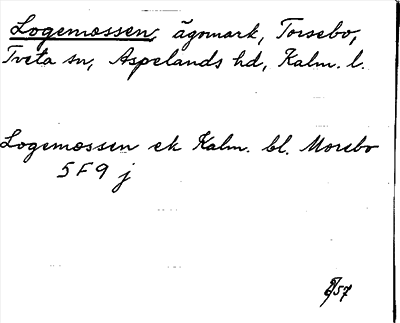 Logemossen, ägomark, Torsebo,
Tveta sn, Aspelands hd, Kalm. l.
Logemossen ek Kalm. bl. Morebo
5F9j
57